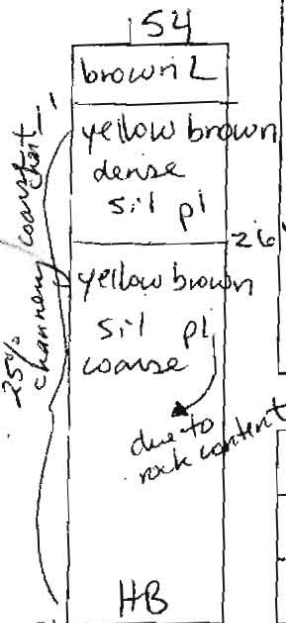 154
brown L
yellow brown
dense
sil pl
26"
yellow brown
sil pl
coarse
due to
rock content
HB
25%
channery/coarse
chert